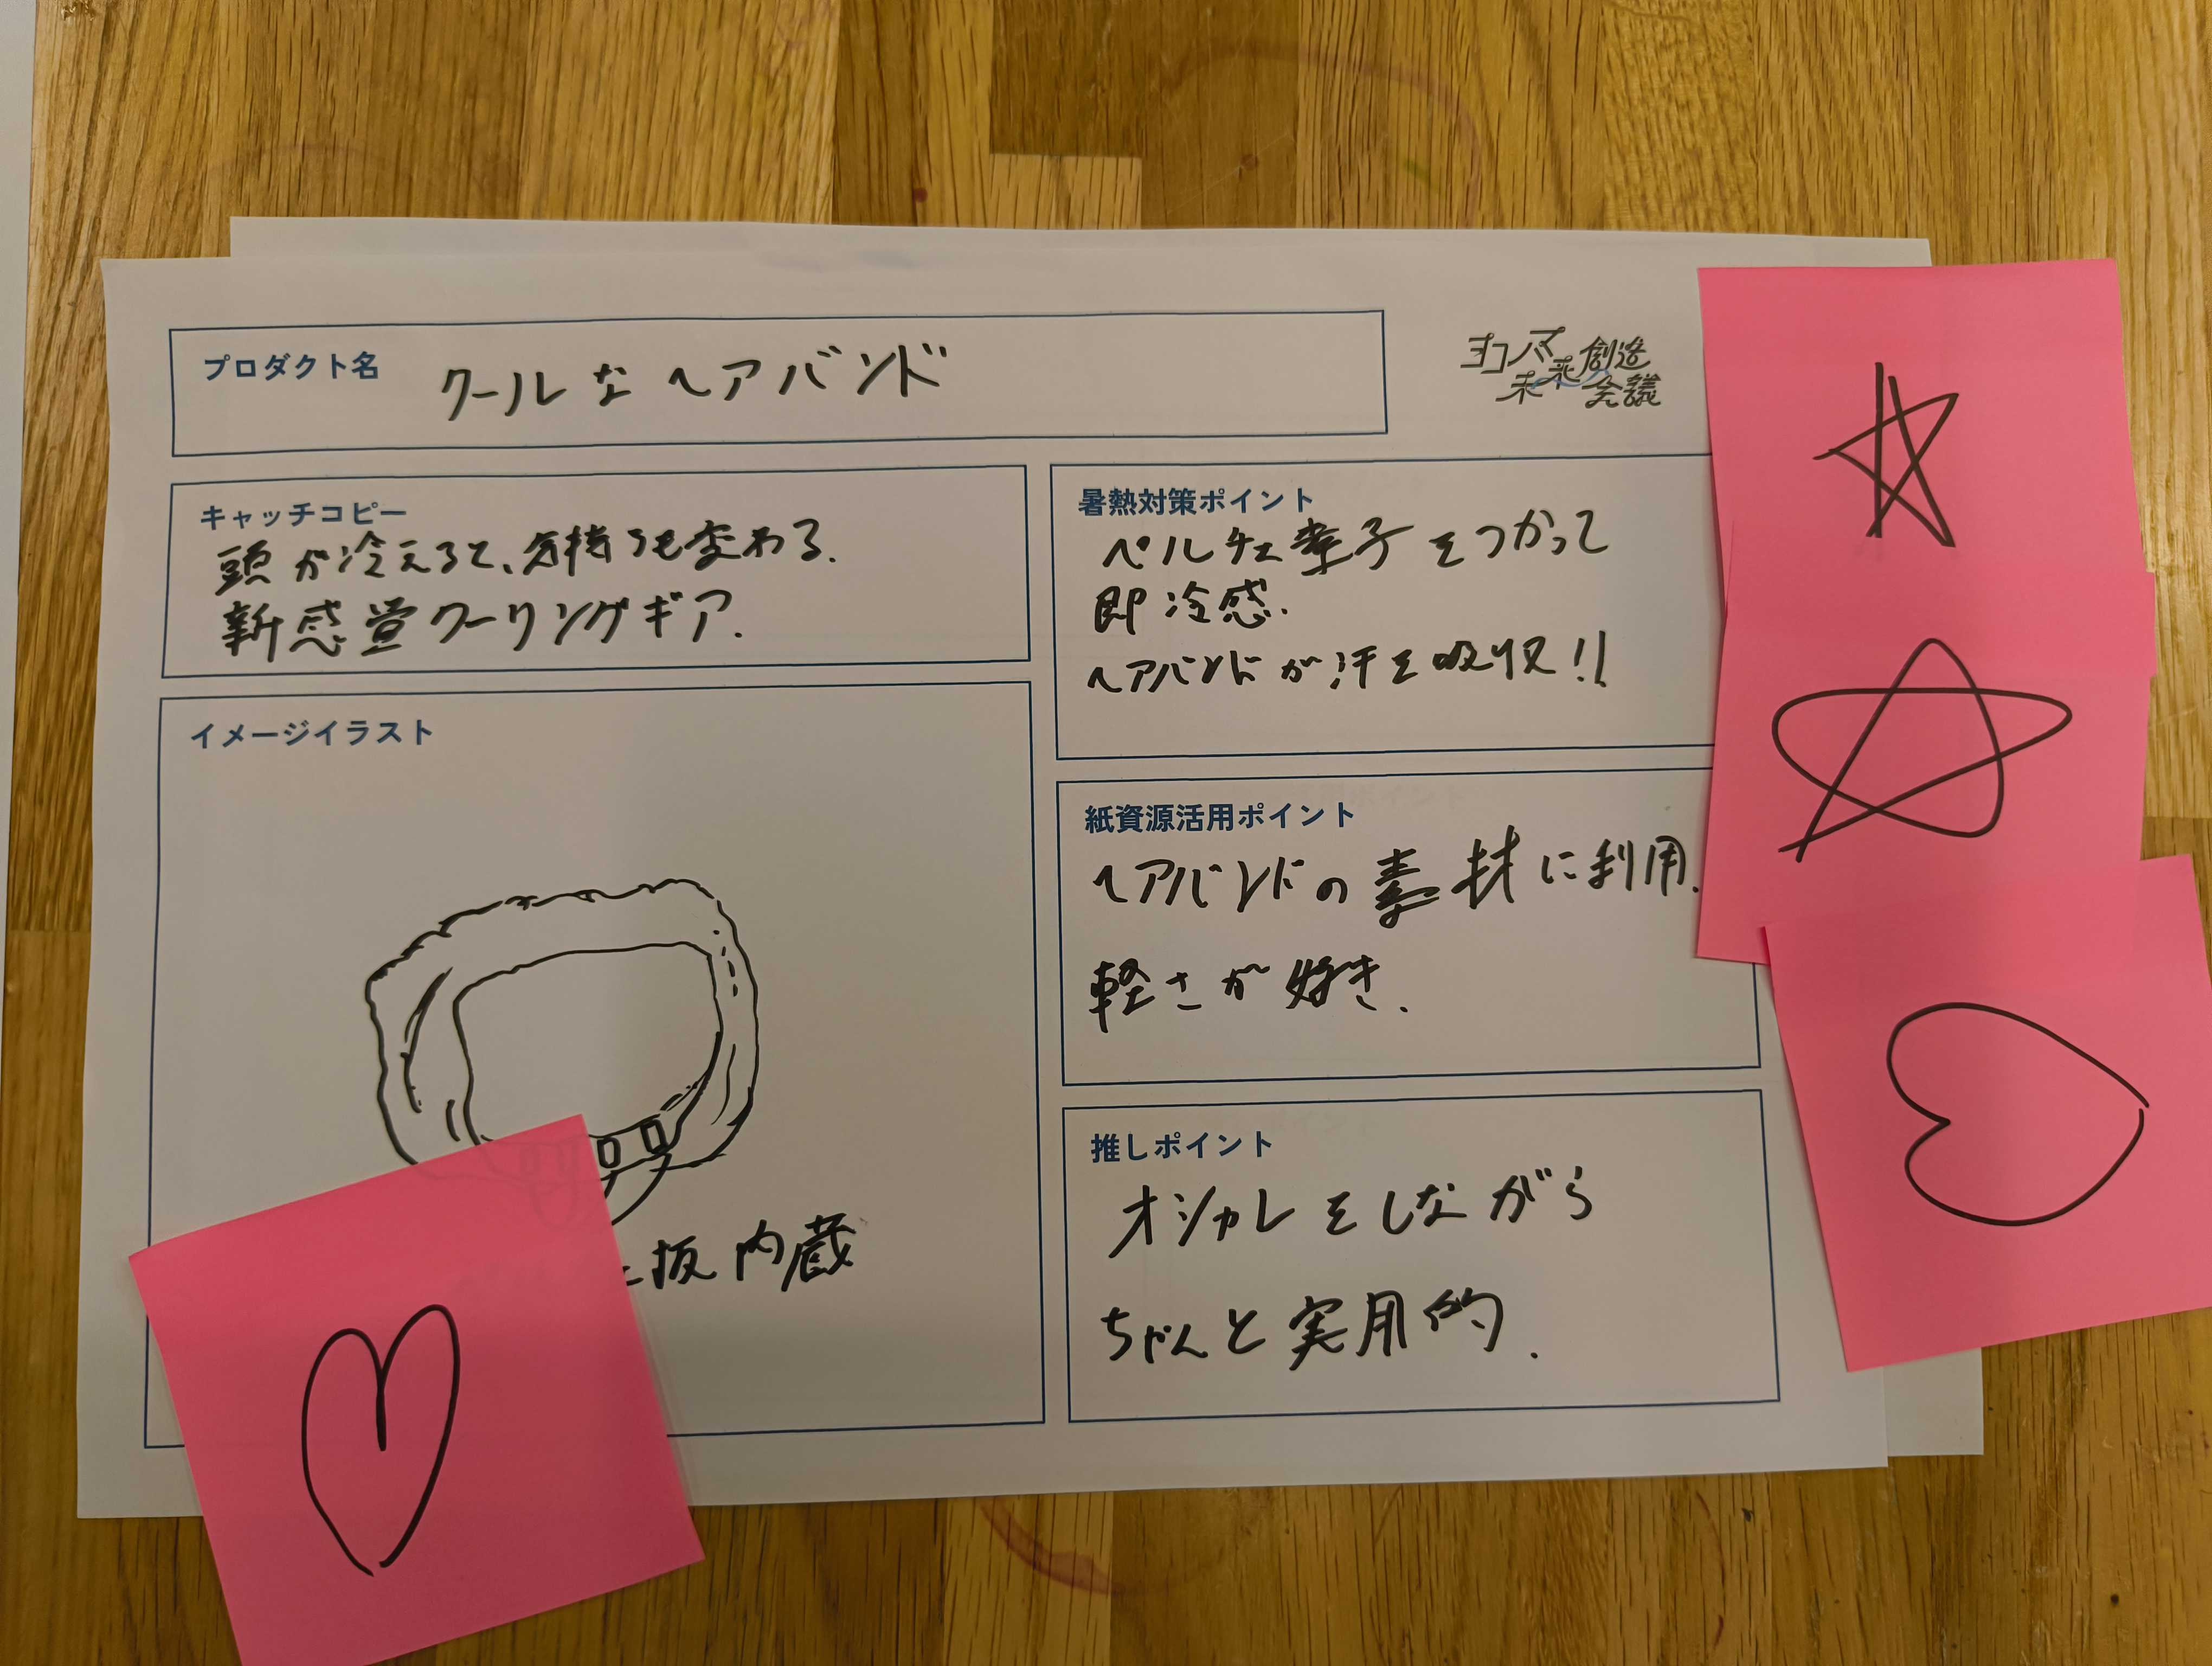 プロダクト名 クールなヘアバンド
ヨコハマ
未来創造
会議
キャッチコピー
頭が冷えると、気持ちも変わる.
新感覚クーリングギア.
イメージイラスト
板内蔵
暑熱対策ポイント
ペルチェ素子をつかって
即冷感.
ヘアバンドが汗を吸収!!
紙資源活用ポイント
ヘアバンドの素材に利用.
軽さが好き.
推しポイント
オシャレをしながら
ちゃんと実用的.